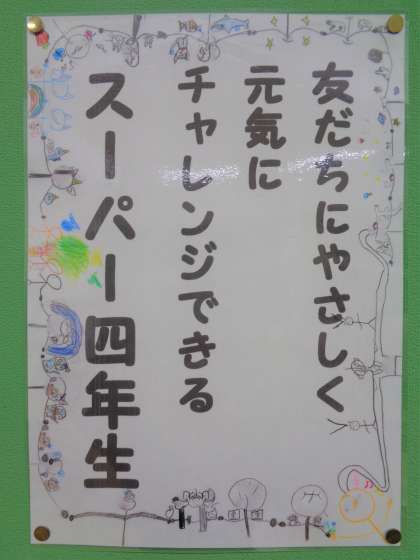 友だちにやさしく
元気に
チャレンジできる
スーパー四年生